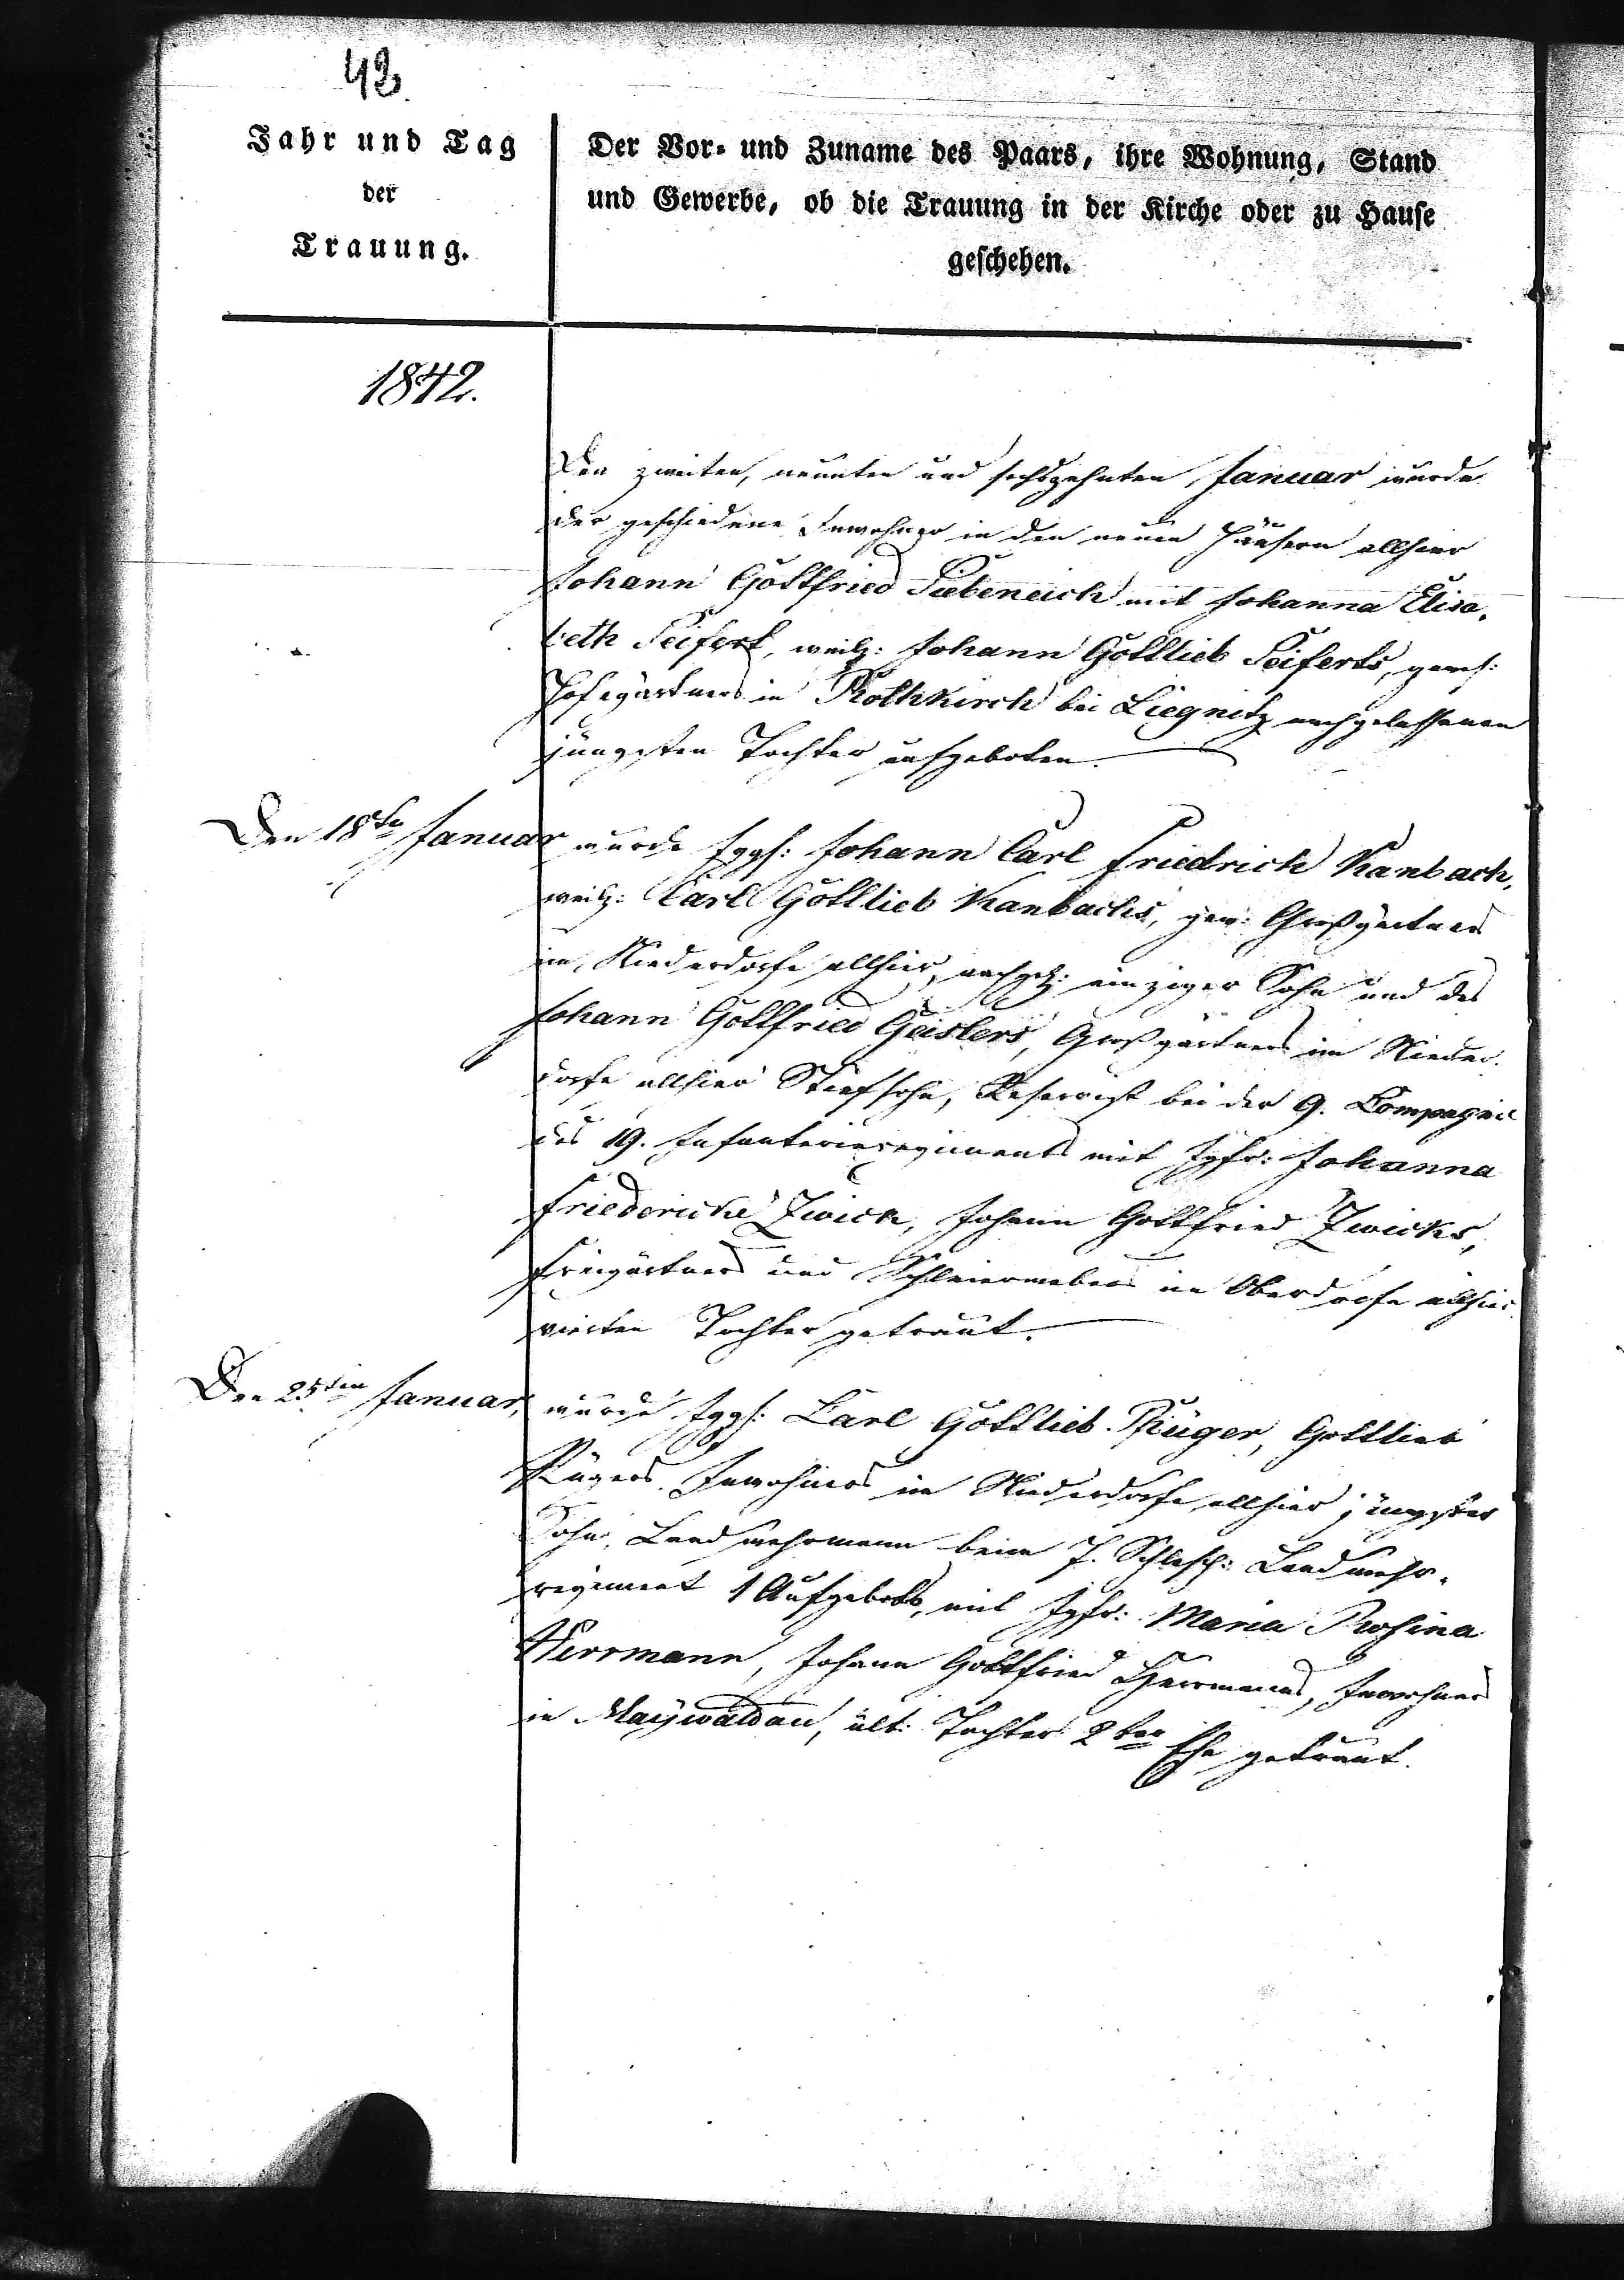 42
Jahr und Tag
der
Trauung.
Der Vor- und Zuname des Paars, ihre Wohnung, Stand
und Gewerbe, ob die Trauung in der Kirche oder zu Hause
geschehen.
1842.
Den zweiten, neunten und sechszehnten Januar wurde
der geschiedene Inwohner in den neuen Häusern allhier
Johann Gottfried Siebeneich mit Johanna Elisa-
beth Seifert, weilg: Johann Gottlieb Seiferts, gewes:
Hofegärtners in Rothkirch bei Liegnitz nachgelassenen
jüngsten Tochter aufgeboten.
Den 18te Januar wurde Iggs: Johann Carl Friedrich Kanbach,
weilg: Carl Gottlieb Kanbachs, gew: Großgärtners
im Niederdorfe allhier, nachgel: einziger Sohn und des
Johann Gottfried Geislers, Großgärtners im Nieder-
dorfe allhier Stiefsohn, Reservist bei der 9. Compagnie
des 19. Infanterieregiments mit Igfr: Johanna
Friedericke Zwick, Johann Gottfried Zwicks,
Freigärtners und Schleierwebers im Oberdorfe allhier
vierten Tochter getraut.
Den 25sten Januar, wurde Iggs: Carl Gottlieb Rüger, Gottlieb
Rügers Inwohners im Niederdorfe allhier jüngster
Sohn, Landwehrmann beim 7. Schlesch: Landwehr-
regiment 1 Aufgebots, mit Igfr: Maria Rosina
Herrmann, Johann Gottfried Herrmanns, Inwohners
in Maywaldau, ält: Tochter 2ter Ehe getraut.